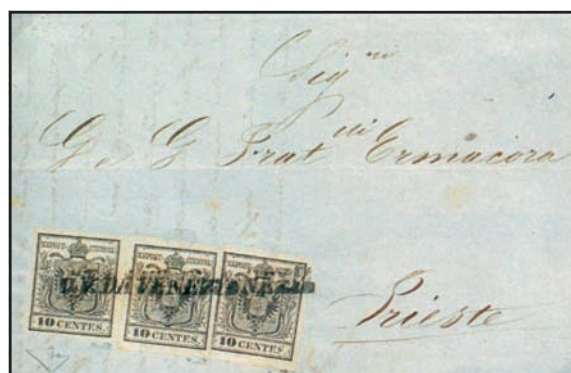 Sig.ri
G. e G. Frat.elli Ermacora
Trieste
10 CENTES. 10 CENTES. 10 CENTES.